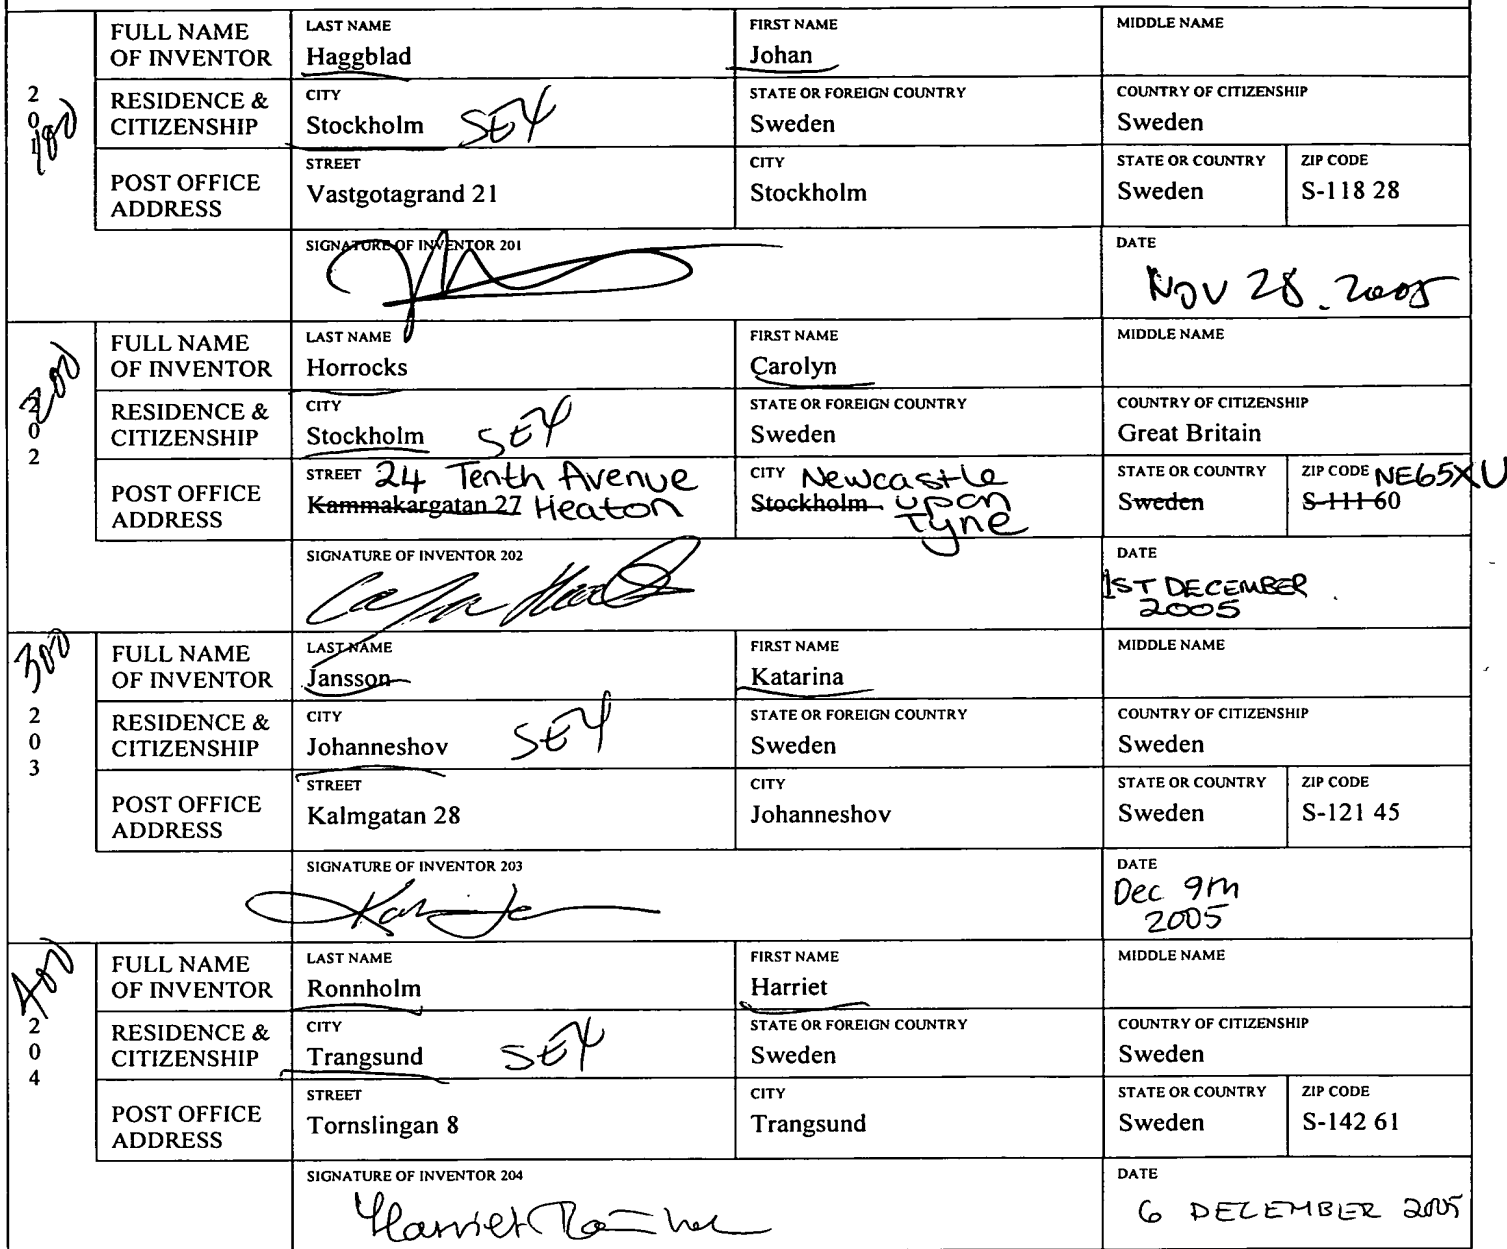 FULL NAME OF INVENTOR
LAST NAME
Haggblad
FIRST NAME
Johan
MIDDLE NAME
201
100
RESIDENCE & CITIZENSHIP
CITY
Stockholm
STATE OR FOREIGN COUNTRY
Sweden
COUNTRY OF CITIZENSHIP
Sweden
POST OFFICE ADDRESS
STREET
Vastgotagrand 21
CITY
Stockholm
STATE OR COUNTRY
Sweden
ZIP CODE
S-118 28
SIGNATURE OF INVENTOR 201
DATE
Nov 28. 2005
200
FULL NAME OF INVENTOR
LAST NAME
Horrocks
FIRST NAME
Carolyn
MIDDLE NAME
202
RESIDENCE & CITIZENSHIP
CITY
Stockholm
STATE OR FOREIGN COUNTRY
Sweden
COUNTRY OF CITIZENSHIP
Great Britain
POST OFFICE ADDRESS
STREET 24 Tenth Avenue
Kammakargatan 27 Heaton
CITY Newcastle
Stockholm upon
Tyne
STATE OR COUNTRY
Sweden
ZIP CODE NE65XU
S-111 60
SIGNATURE OF INVENTOR 202
DATE
1ST DECEMBER
2005
300
FULL NAME OF INVENTOR
LAST NAME
Jansson
FIRST NAME
Katarina
MIDDLE NAME
203
RESIDENCE & CITIZENSHIP
CITY
Johanneshov
STATE OR FOREIGN COUNTRY
Sweden
COUNTRY OF CITIZENSHIP
Sweden
POST OFFICE ADDRESS
STREET
Kalmgatan 28
CITY
Johanneshov
STATE OR COUNTRY
Sweden
ZIP CODE
S-121 45
SIGNATURE OF INVENTOR 203
DATE
Dec 9th
2005
400
FULL NAME OF INVENTOR
LAST NAME
Ronnholm
FIRST NAME
Harriet
MIDDLE NAME
204
RESIDENCE & CITIZENSHIP
CITY
Trangsund
STATE OR FOREIGN COUNTRY
Sweden
COUNTRY OF CITIZENSHIP
Sweden
POST OFFICE ADDRESS
STREET
Tornslingan 8
CITY
Trangsund
STATE OR COUNTRY
Sweden
ZIP CODE
S-142 61
SIGNATURE OF INVENTOR 204
Harriet
DATE
6 DECEMBER 2005